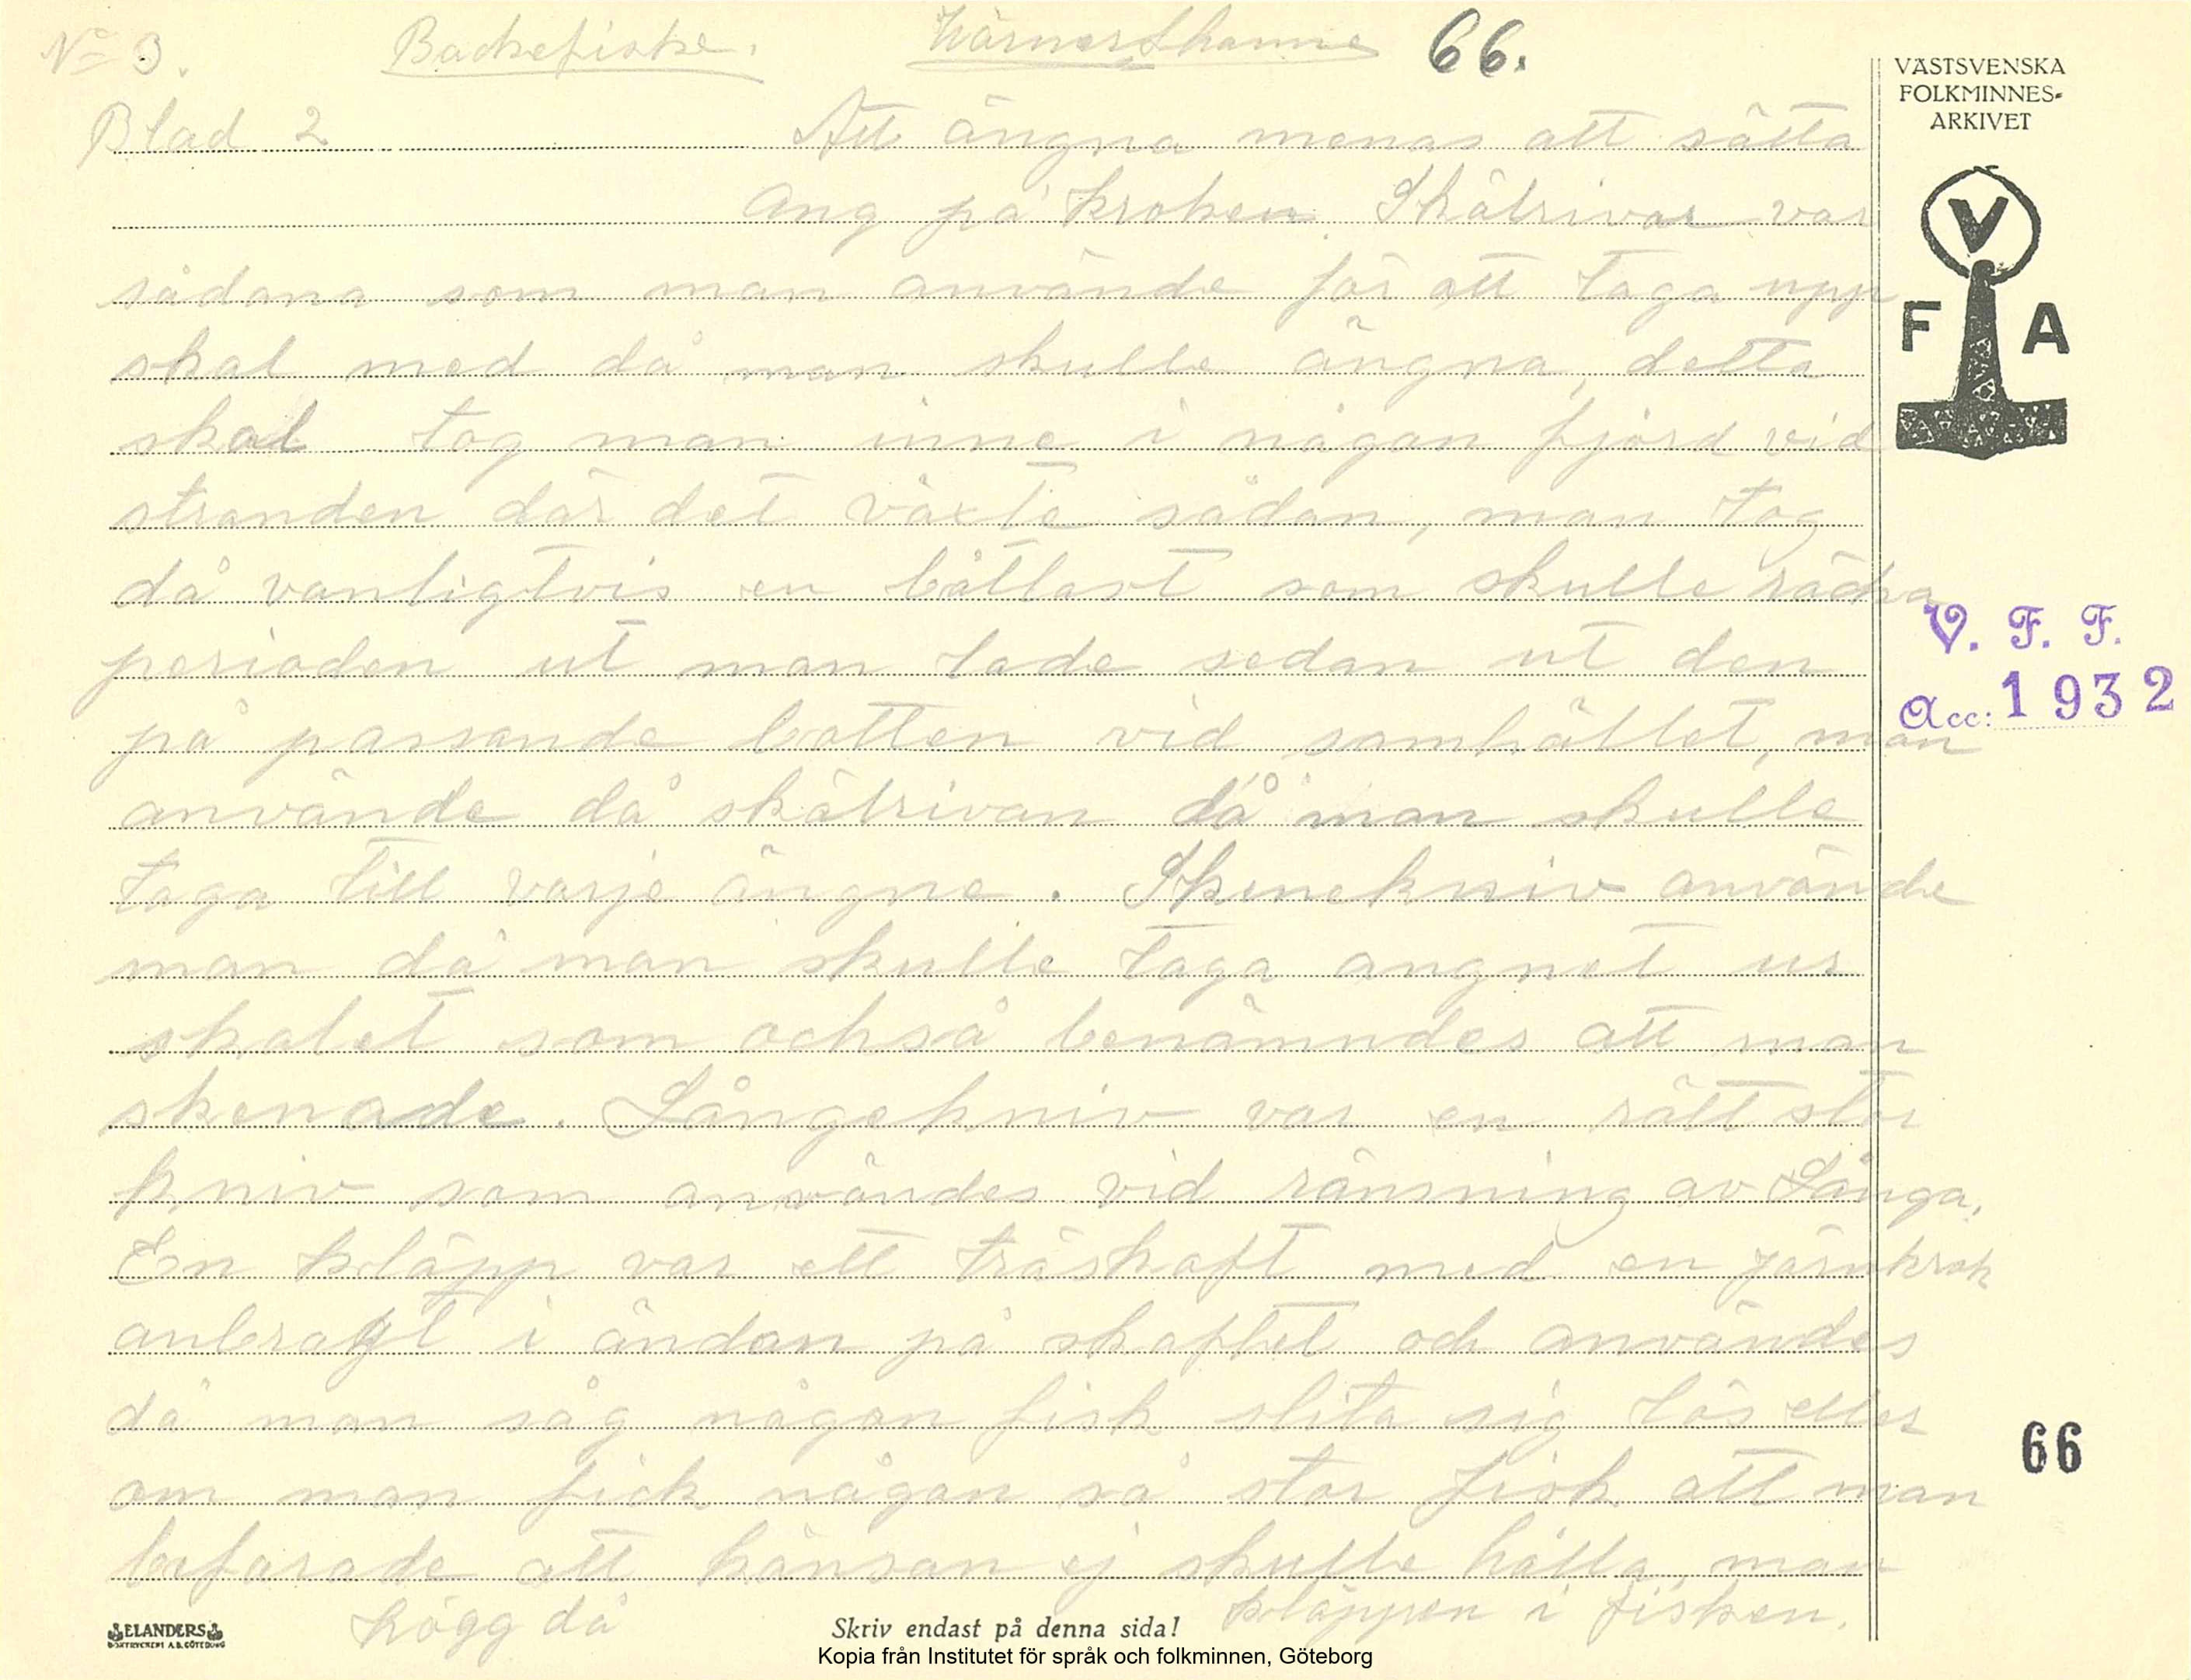 No 3. Backefiske. 66.
Blad 2 Att ängna menas att sätta
Ang på kroken. Skälrivar var
sådana som man använde för att taga upp
skal med då man skulle ängna, detta
skal tog man inne i någon fjord vid
stranden där det växte sådan, man tog
då vanligtvis en båtlast som skulle räcka
perioden ut man lade sedan ut den
på passande botten vid samhället, man
använde då skälrivan då man skulle
taga till varje ängne. Skenekniv använde
man då man skulle taga angnet ur
skalet som också benämndes att man
skenade. Långekniv var en rätt stor
kniv som användes vid ränsning av Långa.
En kläpp var ett träskaft med en järnkrok
anbragt i ändan på skaftet och användes
då man såg någon fisk slita sig lös eller
om man fick någon så stor fisk att man
befarade att hänsan ej skulle hålla, man
högg då kläppen i fisken.
VÄSTSVENSKA
FOLKMINNES-
ARKIVET
V
F A
V. F. F.
Acc: 1932
66
ELANDERS
BOKTRYCKERI A.B. GÖTEBORG
Skriv endast på denna sida!
Kopia från Institutet för språk och folkminnen, Göteborg